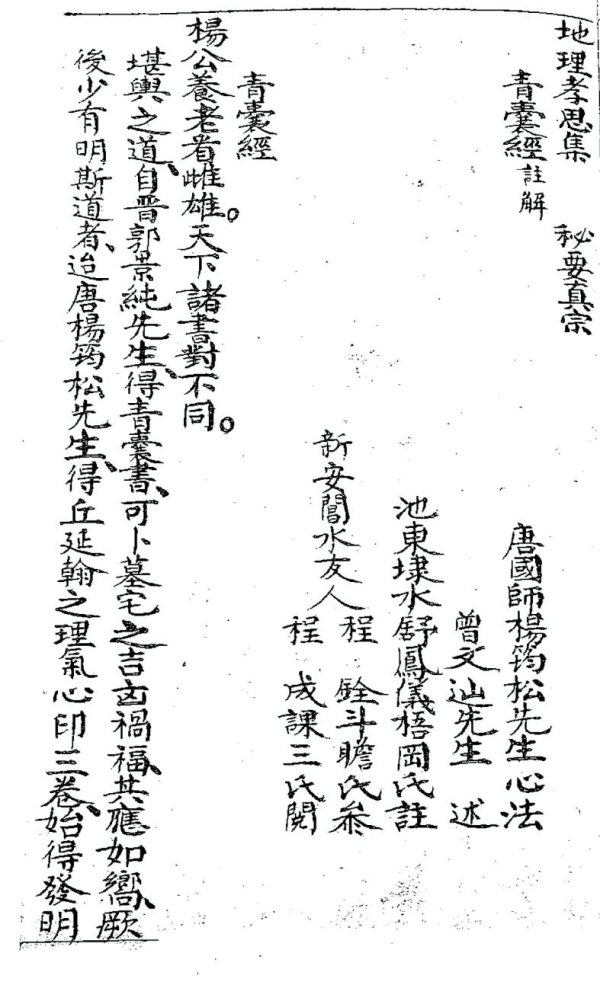 地理孝思集　秘要真宗
青囊經註解
唐國師楊筠松先生心法
曾文辿先生　述
池東埭水舒鳳儀梧岡氏註
新安閶水友人
程　銓斗瞻氏叅
程　成課三氏閱
青囊經
楊公養老看雌雄。天下諸書對不同。
堪輿之道、自晋郭景純先生、得青囊書、可卜墓宅之吉凶禍福、其應如嚮、厥
後少有明斯道者、迨唐楊筠松先生、得丘延翰之理氣心印三卷、始得發明